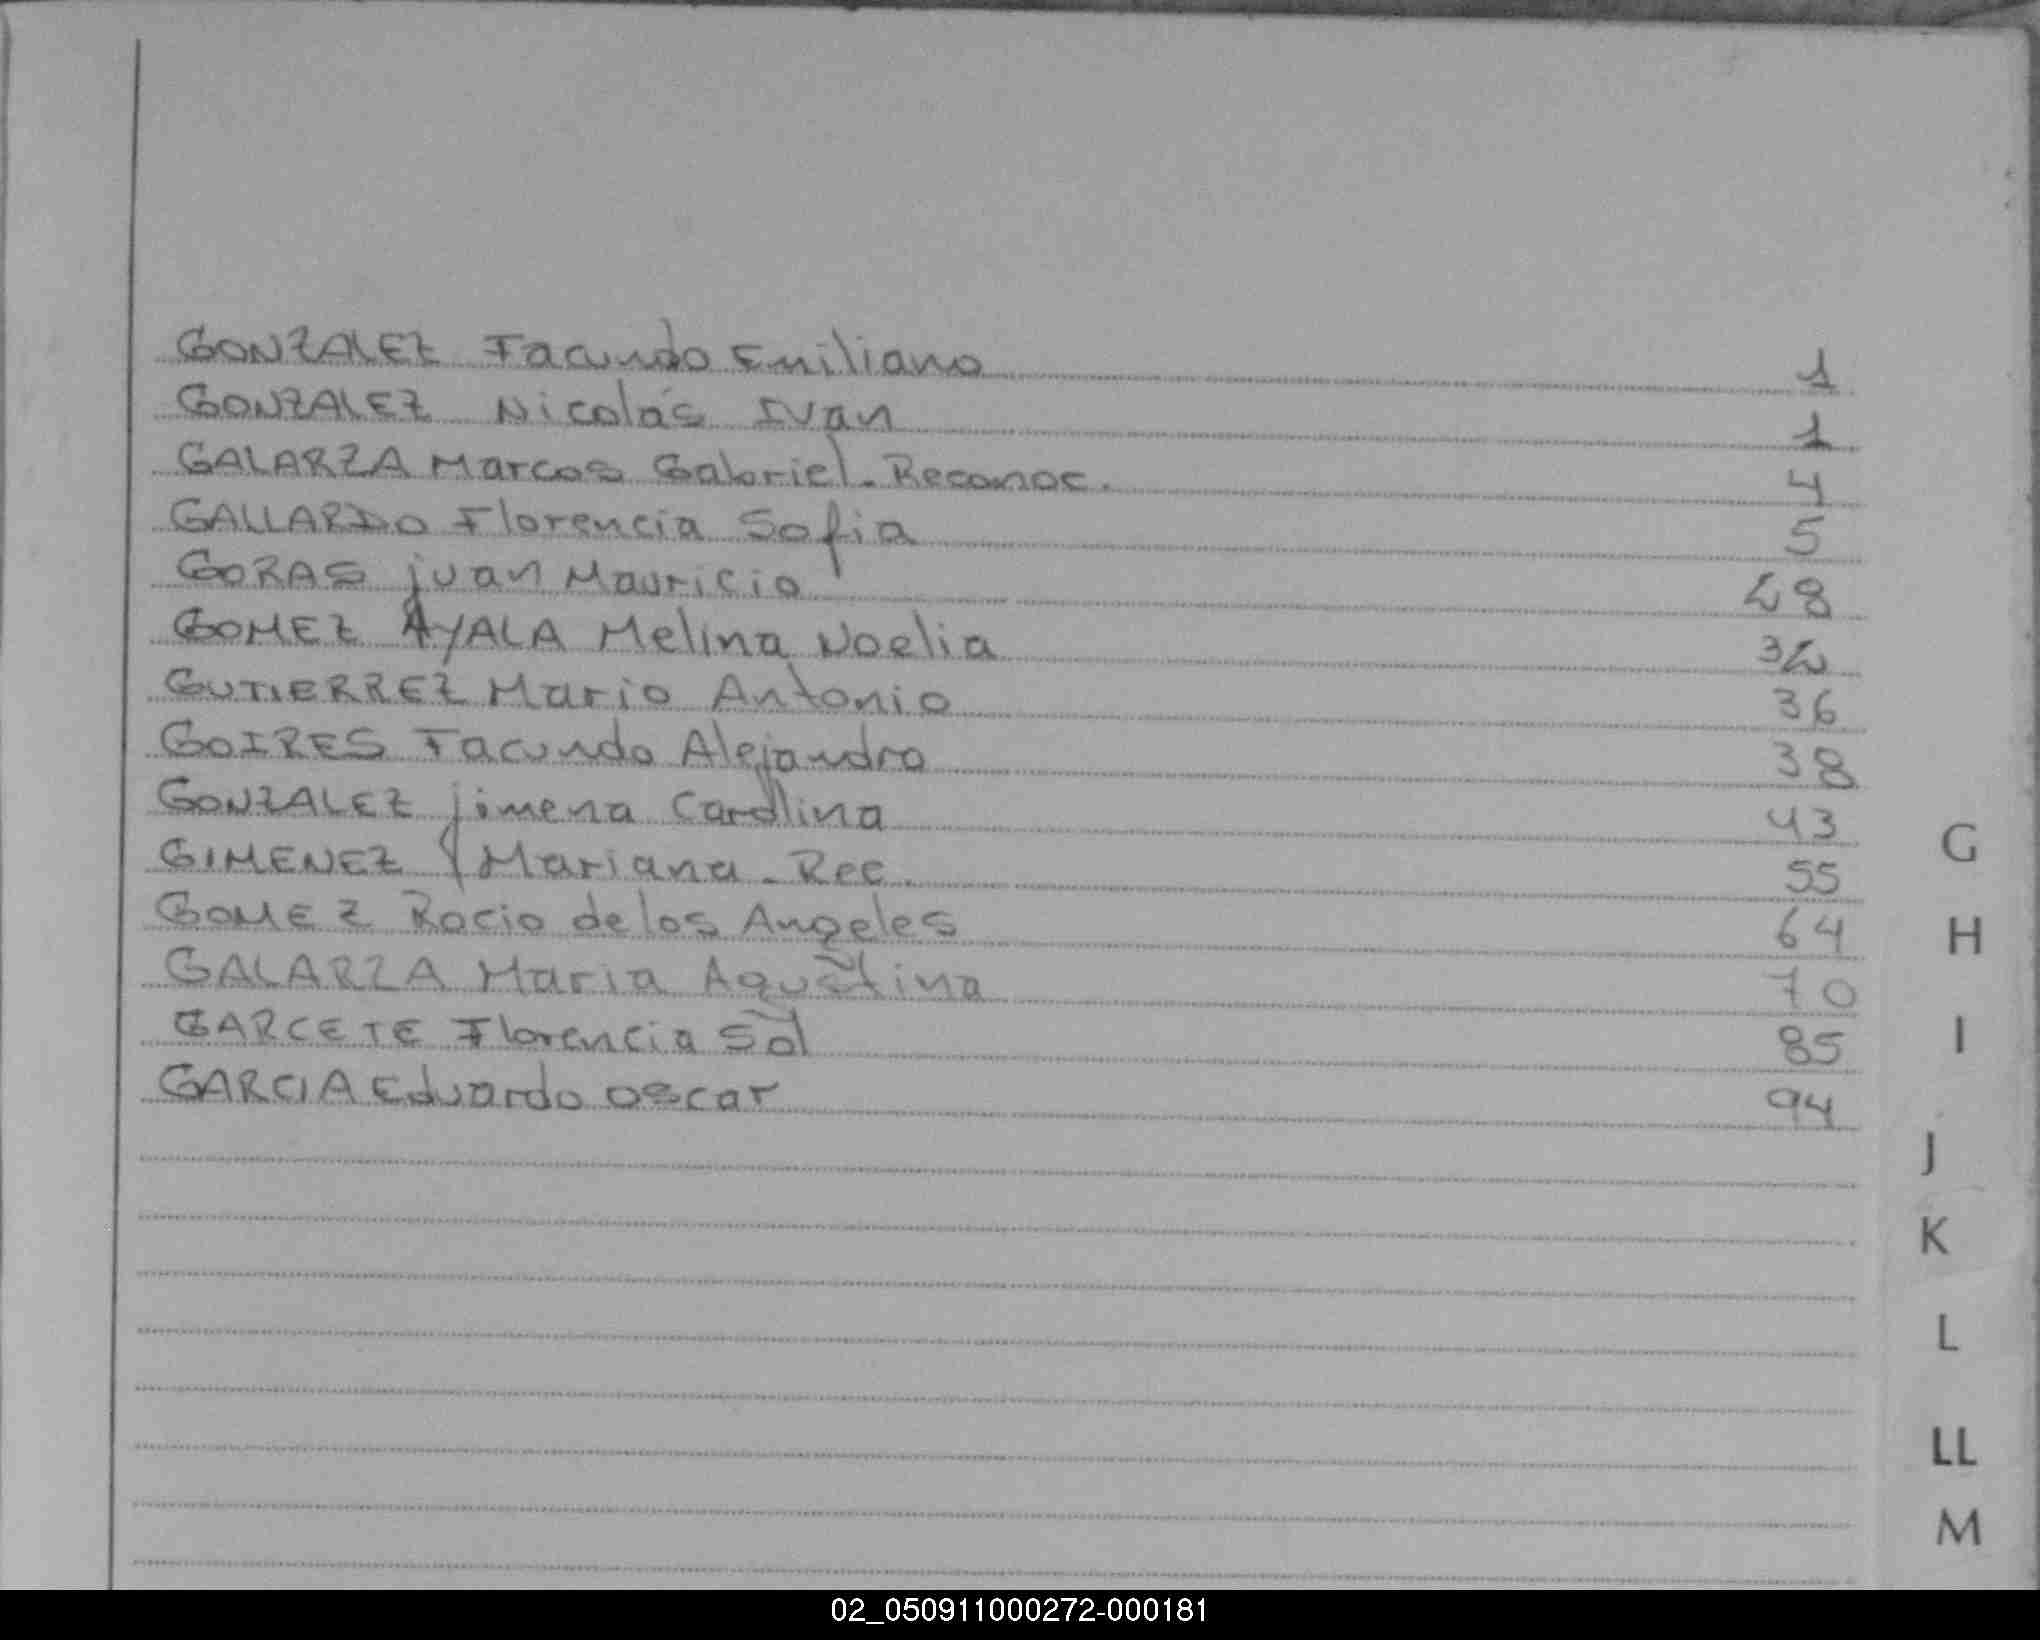 GONZALEZ Facundo Emiliano 1
GONZALEZ Nicolás Ivan 1
GALARZA Marcos Gabriel. Reconoc. 4
GALLARDO Florencia Sofia 5
GORAS juan Mauricio
GOMEZ AYALA Melina Noelia
GUTIERREZ Mario Antonio 36
GOIRES Facundo Alejandro 38
GONZALEZ jimena Carolina 43
GIMENEZ Mariana - Rec. 55
GOMEZ Rocio de los Angeles 64
GALARZA Maria Agustina 70
GARCETE Florencia Sol 85
GARCIA Eduardo Oscar 94
G
H
I
J
K
L
LL
M
02_050911000272-000181